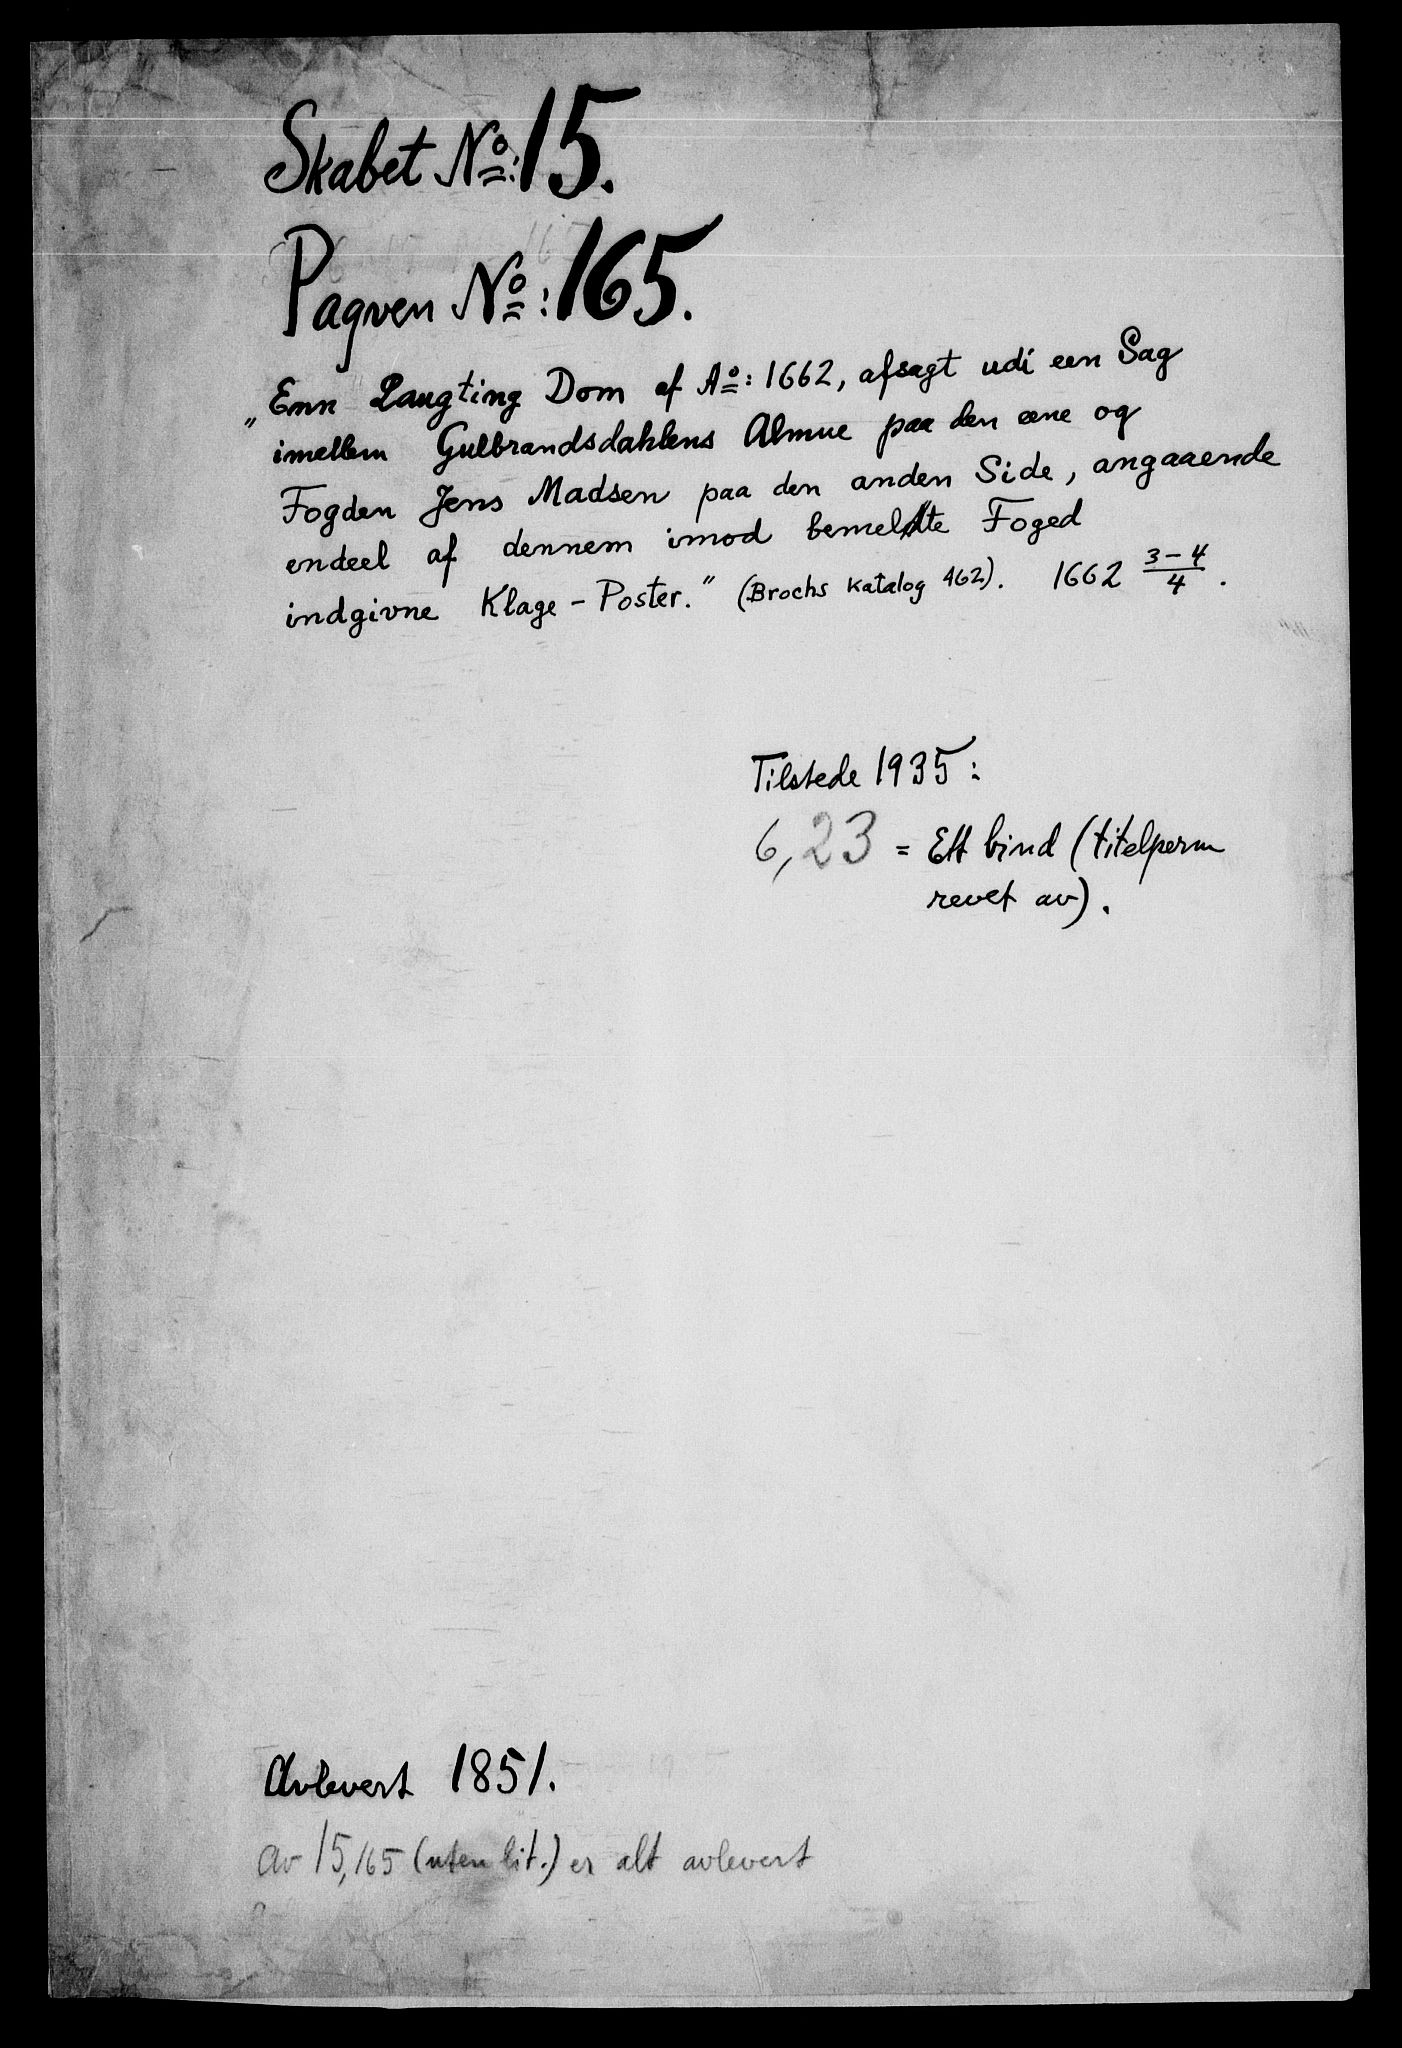 Skabet No: 15.
Paqven No: 165.
"Enn Laugting Dom af Ao: 1662, afsagt udi een Sag
imellem Gulbrandsdahlens Almue paa den eene og
Fogden Jens Madsen paa den anden Side, angaaende
endeel af dennem imod bemeldte Foged
indgivne Klage-Poster." (Brochs Katalog 462). 1662 3-4/4.
Tilstede 1935:
6,23 = Ett bind (titelperm
revet av).
Avlevert 1851.
Av 15,165 (uten lit.) er alt avlevert